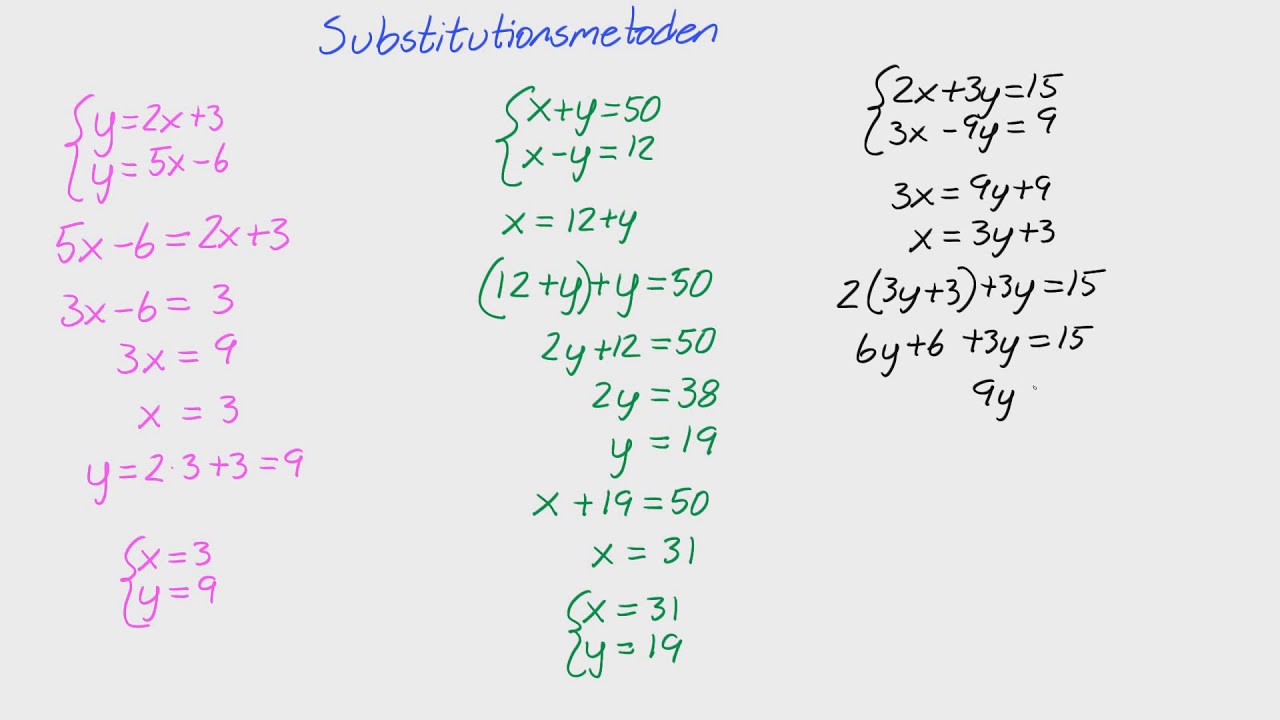 Substitutionsmetoden
y=2x+3
y=5x-6
5x-6=2x+3
3x-6=3
3x=9
x=3
y=2·3+3=9
x=3
y=9
x+y=50
x-y=12
x=12+y
(12+y)+y=50
2y+12=50
2y=38
y=19
x+19=50
x=31
x=31
y=19
2x+3y=15
3x-9y=9
3x=9y+9
x=3y+3
2(3y+3)+3y=15
6y+6+3y=15
9y